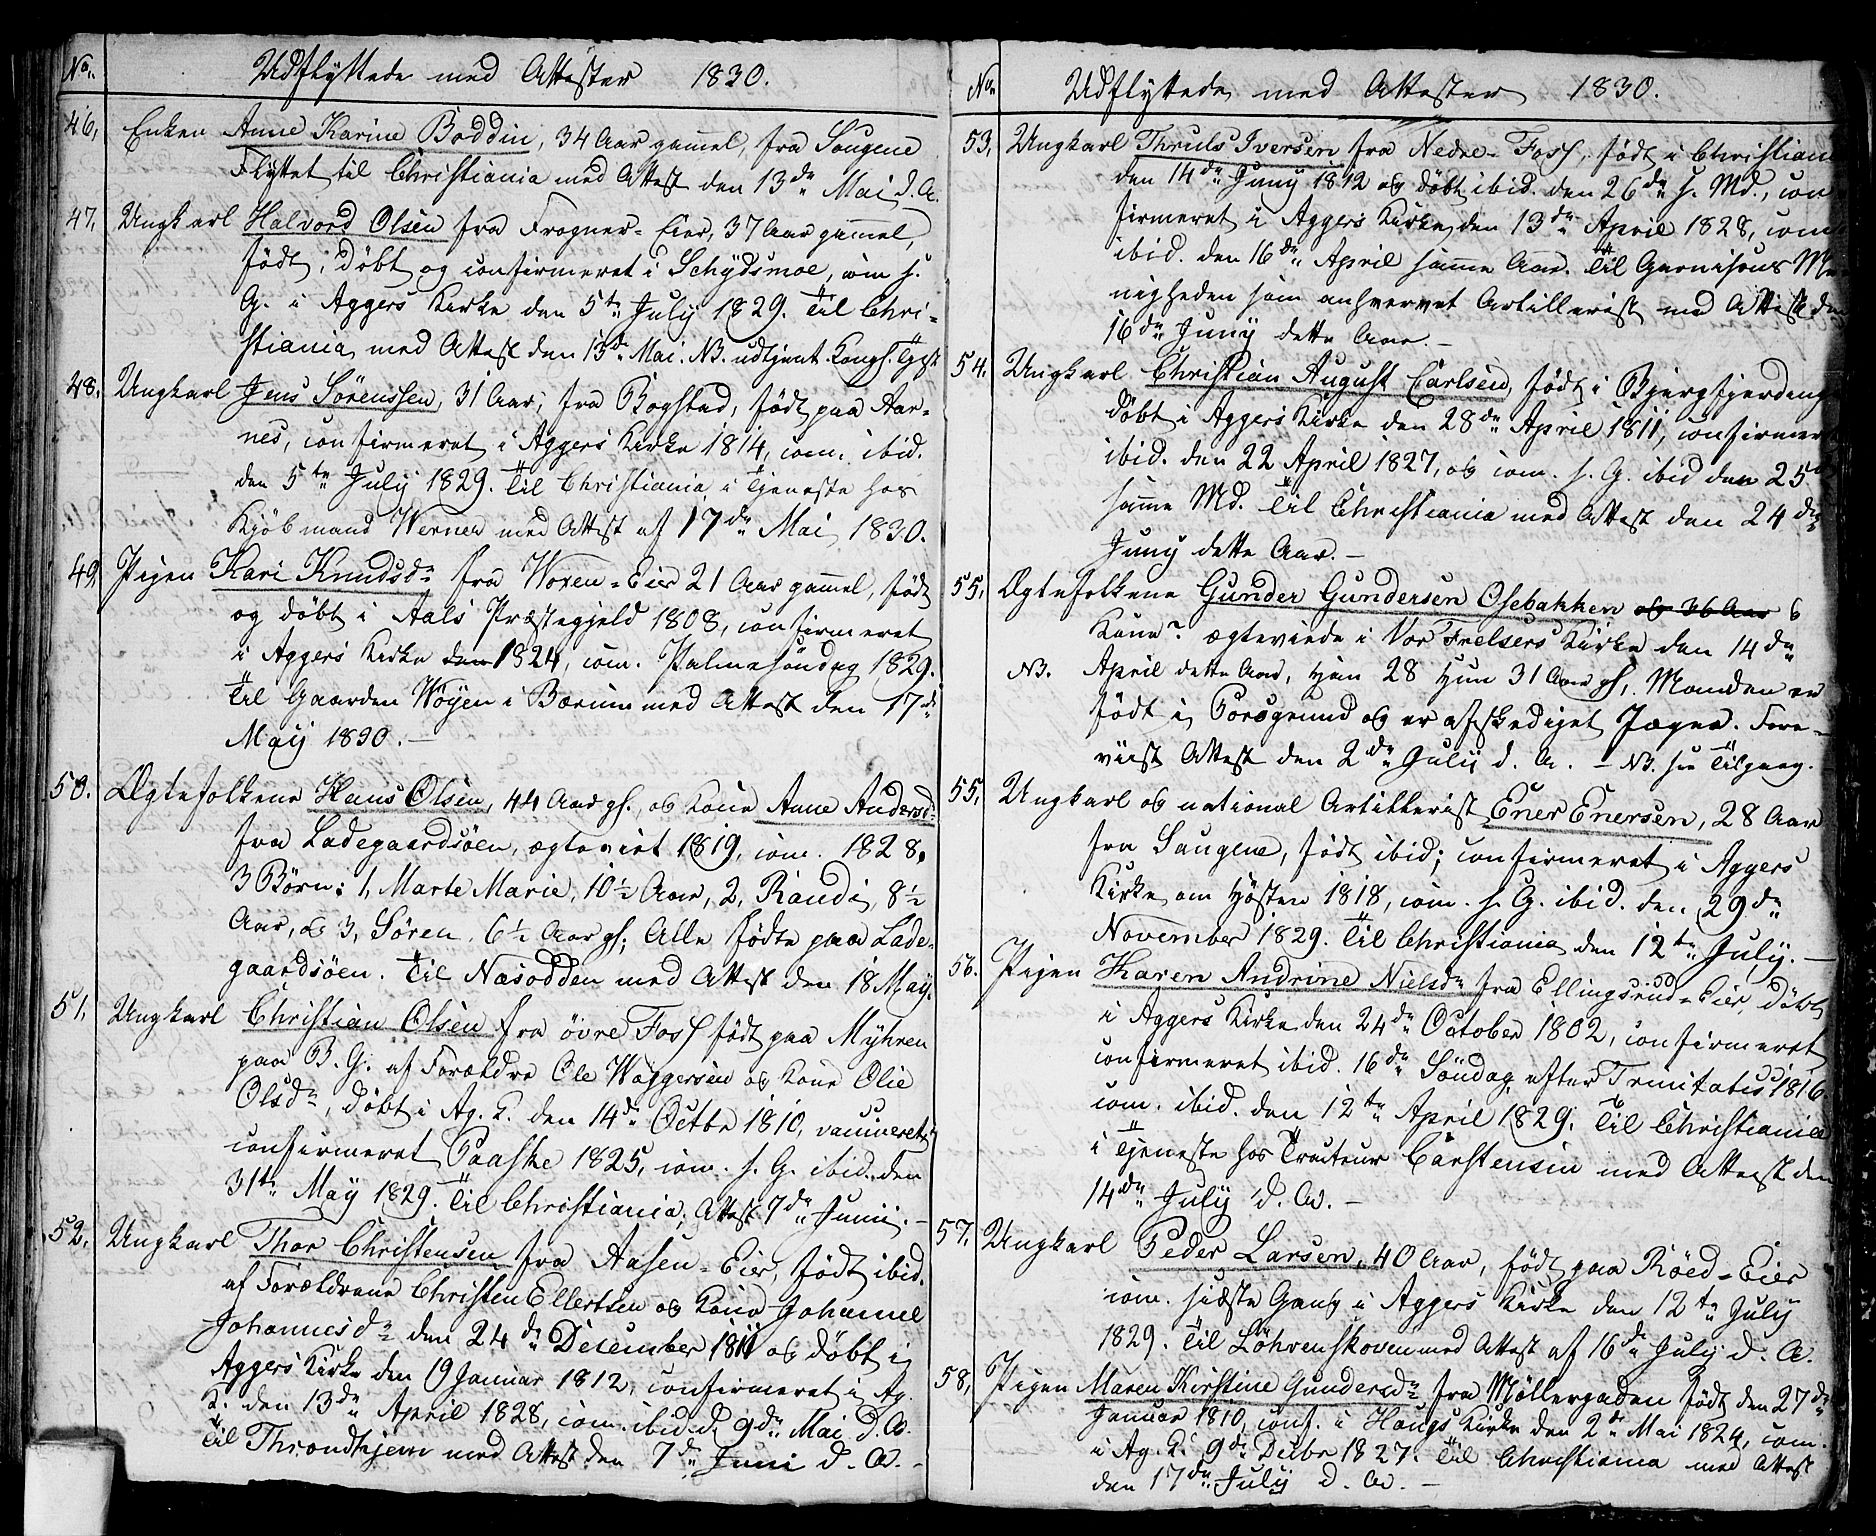 No.
Udflyttede med Attester 1830.
46, Enken Anne Karine Boddin, 34 Aar gamel, fra Sougene
Flyttet til Christiania med Attest den 13de Mai d. A.
47, Ungkarl Halvord Olsen fra Frogner-Eier, 37 Aar gamel,
født, døbt og confirmeret i Schydsmoe, com s.
G. i Aggers Kirke den 5te July 1829. Til Chri-
stiania med Attest den 13de Mai. NB. udtjent Kongs. Tjgst
48. Ungkarl Jens Sørenssen, 31 Aar, fra Bogstad, født paa Aar-
nes, confirmeret i Aggers Kirke 1814, com. ibid.
den 5te July 1829. Til Christiania i Tjeneste hos
Kjöbmand Werner med Attest af 17de Mai 1830.
49, Pigen Kari Knudsdr fra Woxen-Eier 21 Aar gamel, født
og døbt i Aals Præstegjeld 1808, confirmeret
i Aggers Kirke den 1824, com. Palmesöndag 1829.
Til Gaarden Wøyen i Bærum med Attest den 17de
Maij 1830.-
50. Ægtefolkene Hans Olsen, 44 Aar gl. og Kone Anne Andersdr
fra Ladegaardsöen, ægteviet 1819, com. 1828.
3 Børn: 1, Marte Marie, 10½ Aar, 2, Randi, 8½
Aar, og 3, Søren, 6½ Aar gl; Alle fødte paa Lade-
gaardsöen. Til Næsodden med Attest den 18 May.
51, Ungkarl Christian Olsen fra øvre Foss født paa Myhren
paa B. G. af Forældre Ole Waggersen og Kone Olie
Olsdr, døbt i Ag. K. den 14de Octbr 1810, vaccineret,
confirmeret Paaske 1825, com. s. G. ibid. den
31te May 1829. Til Christiania, Attest 7de Junii.-
52, Ungkarl Thor Christensen fra Aasen-Eier, født ibid.
af Forældrene Christen Ellertsen og Kone Johanne
Johannesdr den 24de December 1811 og døbt i
Aggers Kirke den 19 Januar 1812, confirmeret i Ag.
K. den 13de April 1828, com. ibid d. 9de Mai d. A.
Til Throndhjem med Attest den 7de Juni d. A.-
No.
Udflyttede med Attester 1830.
53, Ungkarl Thruls Iversen fra Nedre-Foss, født i Christiania
den 14de Juny 1812 og døbt ibid. den 26de s. Md., con-
firmeret i Aggers Kirke den 13de April 1828, com.
ibid. den 16de April samme Aar. Til Garnisons Me-
nigheden som anhvervet Artillerist med Attest den
16de Juny dette Aar.-
54. Ungkarl Christian August Carlsen, født i Bjergfjerdingen
døbt i Aggers Kirke den 28de April 1811, confirmeret
ibid. den 22 April 1827, og com. s. G. ibid den 25de
samme Md. Til Christiania med Attest den 24de
Juny dette Aar.-
55, Ægtefolkene Gunder Gundersen Osebakken og 36 Aar &
Kone? ægteviede i Vor Frelsers Kirke den 14de
NB. April dette Aar, Han 28 Hun 31 Aar gl, Manden er
født i Porsgrund og er afskediget Jæger. Fore-
viist Attest den 2de July d. A. - NB. see Tilgang.
55, Ungkarl og national Artillerist Ener Enersen, 28 Aar
fra Saugene, født ibid; confirmeret i Aggers
Kirke om Høsten 1818, com. s. G. ibid. den 29de
November 1829. Til Christiania den 12te July.-
56. Pigen Karen Andrine Nielsdr fra Ellingsrud-Eier, døbt
i Aggers Kirke den 24de October 1802, confirmeret
confirmeret ibid. 16de Söndag efter Trinitatis 1816
com. ibid. den 12te April 1829. Til Christiania
i Tjeneste hos Tracteur Carstensen med Attest den
14de July d. A.-
57, Ungkarl Peder Larsen, 40 Aar, født paa Røed-Eier
com. sidste Gang i Aggers Kirke den 12te July
1829. Til Löhrenskoven med Attest af 16de July d. A.
58, Pigen Maren Kirstine Gundersdr fra Møllergaden født den 27de
Januar 1810, conf. i Haugs Kirke den 2de Mai 1824, com.
i Ag. K. 9de Decbr 1827. Til Christiania med Attest
den 17de July d. A.-